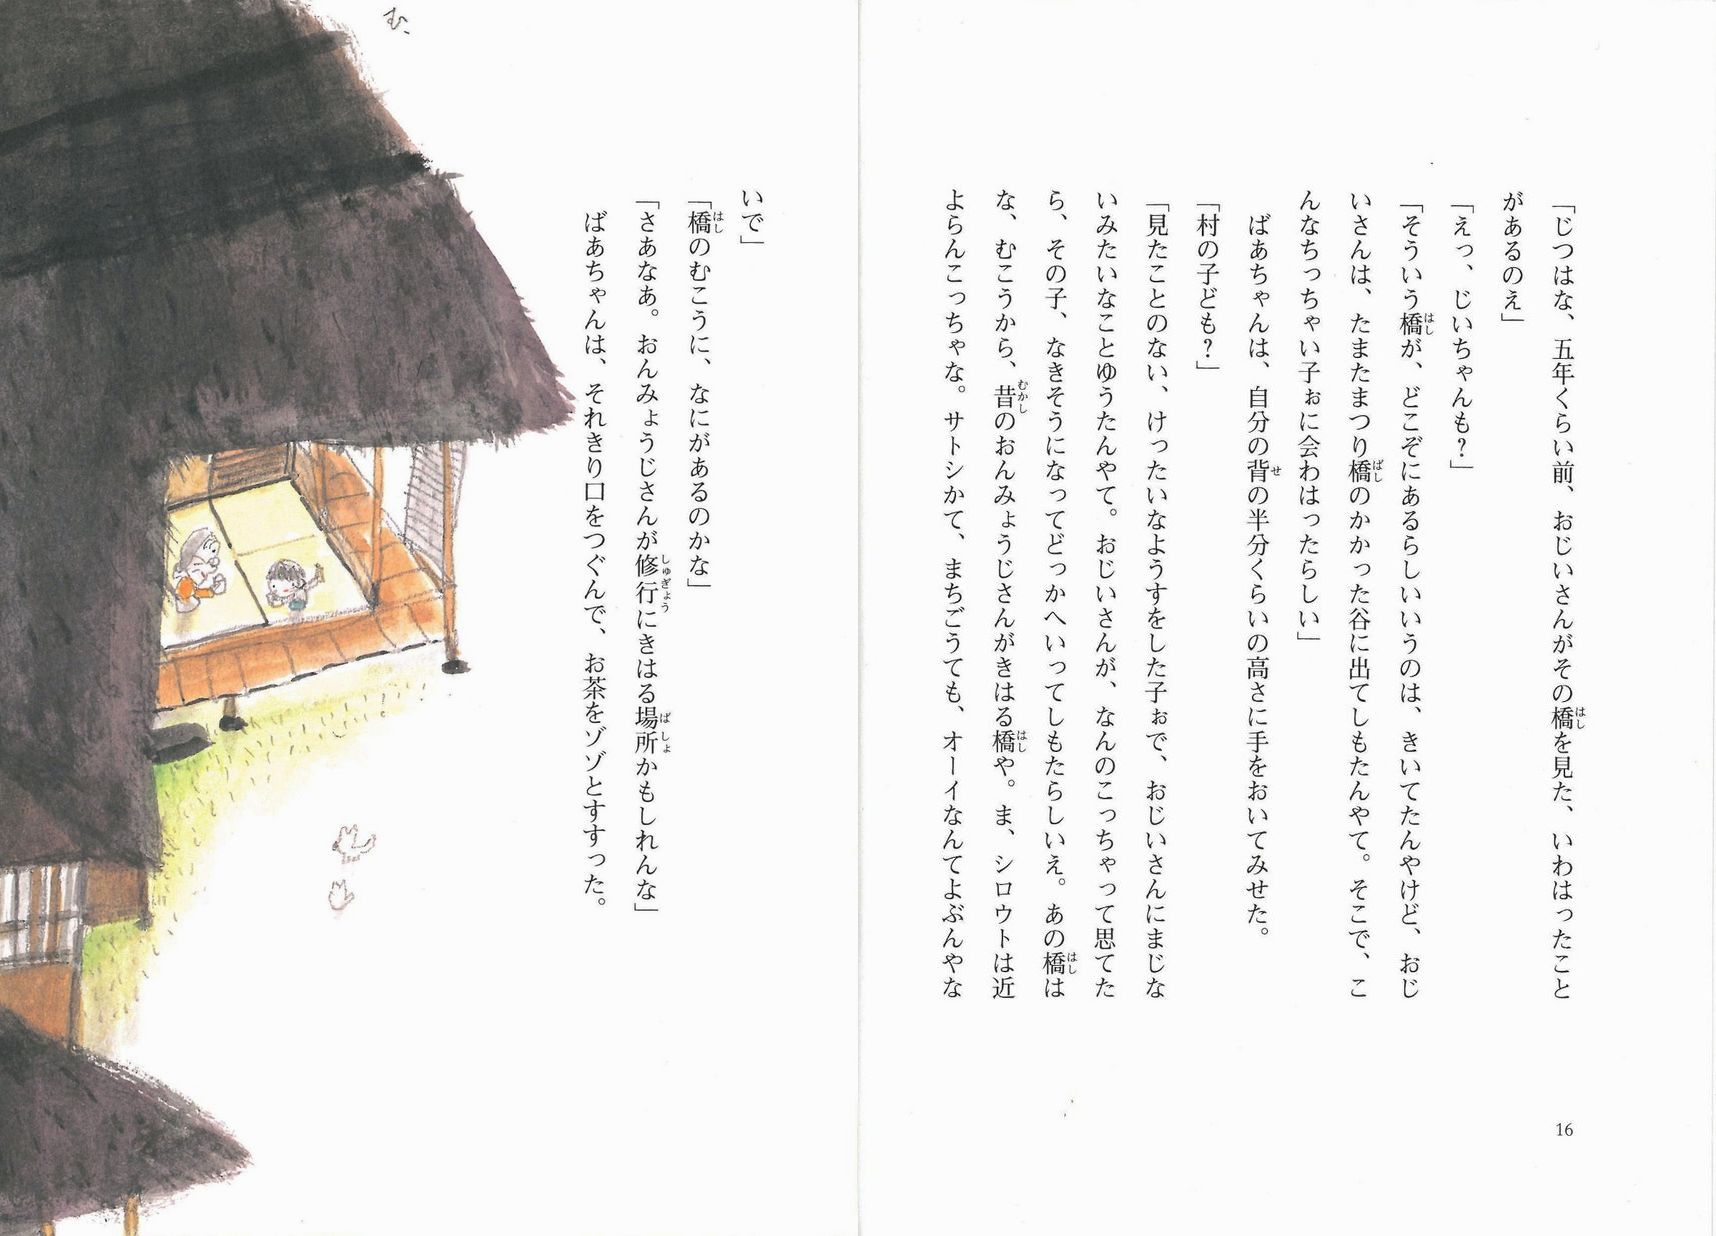 「じつはな、五年くらい前、おじいさんがその橋を見た、いわはったこと
があるのえ」
「えっ、じいちゃんも？」
「そういう橋が、どこぞにあるらしいいうのは、きいてたんやけど、おじ
いさんは、たまたまつり橋のかかった谷に出てしもたんやて。そこで、こ
んなちっちゃい子ぉに会わはったらしい」
ばあちゃんは、自分の背の半分くらいの高さに手をおいてみせた。
「村の子ども？」
「見たことのない、けったいなようすをした子ぉで、おじいさんにまじな
いみたいなことゆうたんやて。おじいさんが、なんのこっちゃって思てた
ら、その子、なきそうになってどっかへいってしもたらしいえ。あの橋は
な、むこうから、昔のおんみょうじさんがきはる橋や。ま、シロウトは近
よらんこっちゃな。サトシかて、まちごうても、オーイなんてよぶんやな
16
いで」
「橋のむこうに、なにがあるのかな」
「さあなあ。おんみょうじさんが修行にきはる場所かもしれんな」
ばあちゃんは、それきり口をつぐんで、お茶をゾゾとすすった。